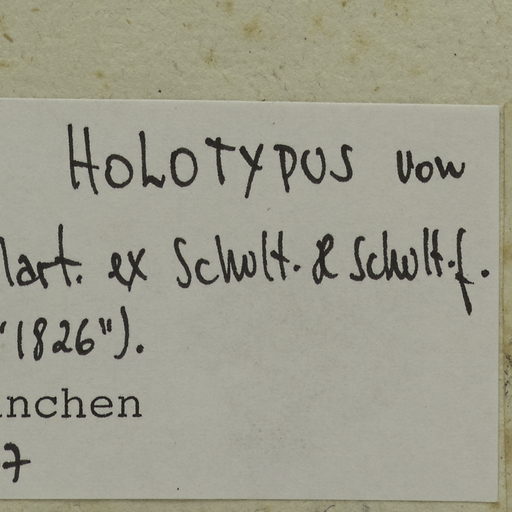 HOLOTYPUS von
Mart. ex Schult. & Schult. f.
"1826").
ünchen
7